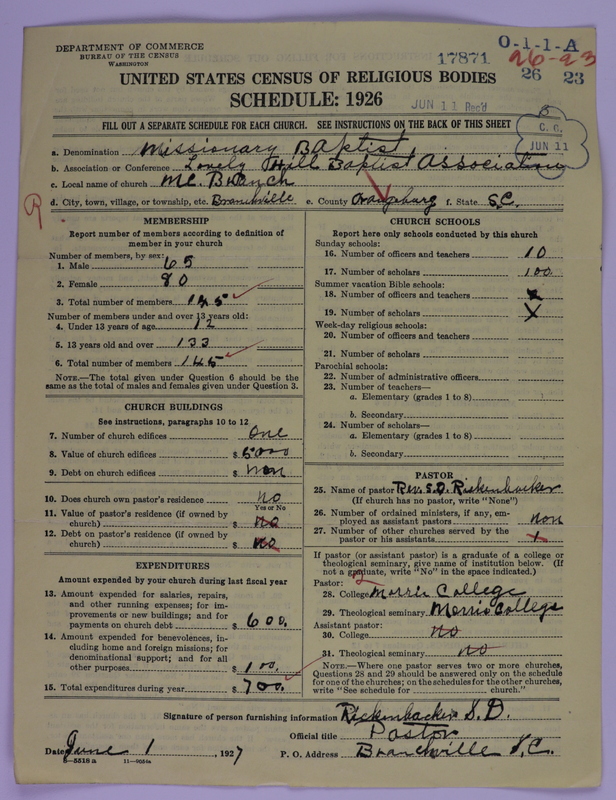 DEPARTMENT OF COMMERCE
BUREAU OF THE CENSUS
WASHINGTON
17871
O-1-1-A
26-23
26 23
UNITED STATES CENSUS OF RELIGIOUS BODIES
SCHEDULE: 1926
JUN 11 Rec'd
FILL OUT A SEPARATE SCHEDULE FOR EACH CHURCH. SEE INSTRUCTIONS ON THE BACK OF THIS SHEET
C. O.
JUN 11
a. Denomination Missionary Baptist
b. Association or Conference Lovely Hill Baptist Association
c. Local name of church Mc. Branch
d. City, town, village, or township, etc. Branchville e. County Orangeburg f. State S.C.
MEMBERSHIP
Report number of members according to definition of member in your church
Number of members, by sex:
1. Male 65
2. Female 80
3. Total number of members 145
Number of members under and over 13 years old:
4. Under 13 years of age 12
5. 13 years old and over 133
6. Total number of members 145
NOTE.—The total given under Question 6 should be the same as the total of males and females given under Question 3.
CHURCH BUILDINGS
See instructions, paragraphs 10 to 12
7. Number of church edifices one
8. Value of church edifices $ 5000
9. Debt on church edifices $ non
10. Does church own pastor's residence no
Yes or No
11. Value of pastor's residence (if owned by church) $ no
12. Debt on pastor's residence (if owned by church) $ no
EXPENDITURES
Amount expended by your church during last fiscal year
13. Amount expended for salaries, repairs, and other running expenses; for improvements or new buildings; and for payments on church debt $ 600.
14. Amount expended for benevolences, including home and foreign missions; for denominational support; and for all other purposes $ 100.
15. Total expenditures during year $ 700.
CHURCH SCHOOLS
Report here only schools conducted by this church
Sunday schools:
16. Number of officers and teachers 10
17. Number of scholars 100
Summer vacation Bible schools:
18. Number of officers and teachers x
19. Number of scholars X
Week-day religious schools:
20. Number of officers and teachers
21. Number of scholars
Parochial schools:
22. Number of administrative officers
23. Number of teachers—
a. Elementary (grades 1 to 8)
b. Secondary
24. Number of scholars—
a. Elementary (grades 1 to 8)
b. Secondary
PASTOR
25. Name of pastor Rev. S.D. Rickenbacker
(If church has no pastor, write "None")
26. Number of ordained ministers, if any, employed as assistant pastors non
27. Number of other churches served by the pastor or his assistants
If pastor (or assistant pastor) is a graduate of a college or theological seminary, give name of institution below. (If not a graduate, write "No" in the space indicated.)
Pastor:
28. College Morris College
29. Theological seminary Morris College
Assistant pastor:
30. College no
31. Theological seminary no
NOTE.—Where one pastor serves two or more churches, Questions 28 and 29 should be answered only on the schedule for one of the churches; on the schedules for the other churches, write "See schedule for ________ church."
Signature of person furnishing information Rickenbacker S.D.
Official title Pastor
Date June 1, 1927 P. O. Address Branchville S.C.
8—5518 a 11—9054a